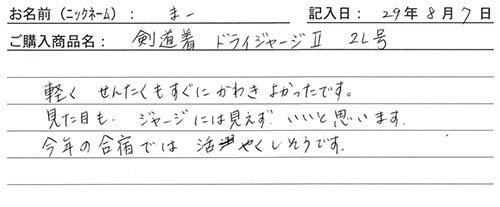 お名前（ニックネーム）： まー 記入日： 29年 8月 7日
ご購入商品名： 剣道着 ドライジャージⅡ 2L号
軽く せんたくもすぐにかわき よかったです。
見た目も、ジャージには見えず いいと思います。
今年の合宿では 活やくしそうです。